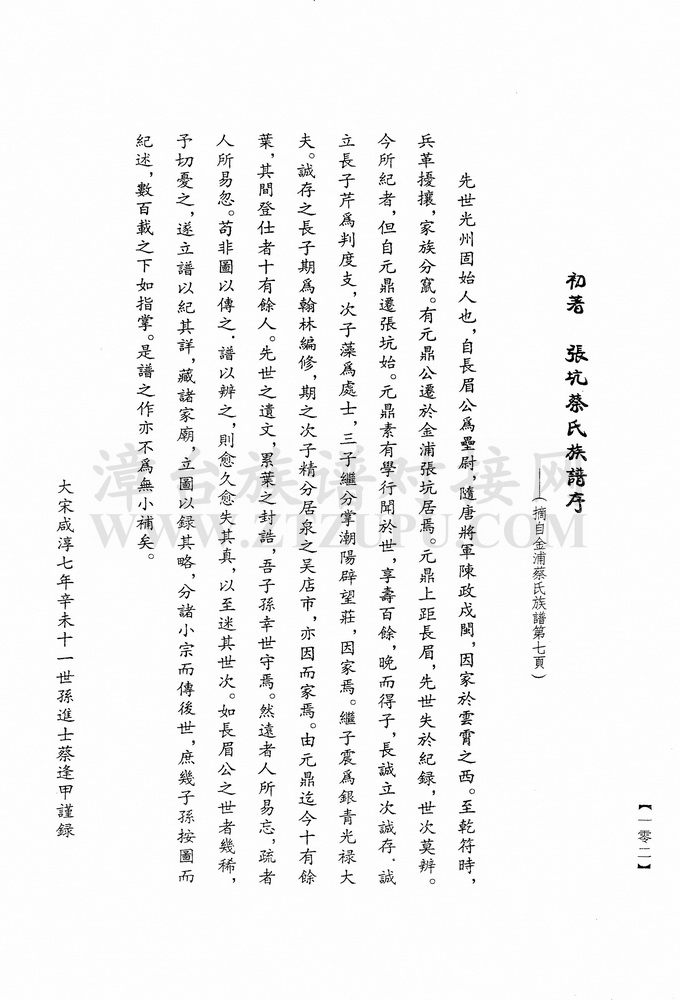 初著　張坑蔡氏族譜序
——(摘自金浦蔡氏族譜第七頁)
先世光州固始人也，自長眉公爲壘尉，隨唐將軍陳政戍閩，因家於雲霄之西。至乾符時，
兵革擾攘，家族分竄。有元鼎公遷於金浦張坑居焉。元鼎上距長眉，先世失於紀録，世次莫辨。
今所紀者，但自元鼎遷張坑始。元鼎素有學行聞於世，享壽百餘，晚而得子，長誠立次誠存．誠
立長子芹爲判度支，次子藻爲處士，三子繼分掌潮陽辟望莊，因家焉。繼子震爲銀青光禄大
夫。誠存之長子期爲翰林編修，期之次子精分居泉之吴店市，亦因而家焉。由元鼎迄今十有餘
葉，其間登仕者十有餘人。先世之遺文，累葉之封誥，吾子孫幸世守焉。然遠者人所易忘，疏者
人所易忽。苟非圖以傳之．譜以辨之，則愈久愈失其真，以至迷其世次。如長眉公之世者幾稀，
予切憂之，遂立譜以紀其詳，藏諸家廟，立圖以録其略，分諸小宗而傳後世，庶幾子孫按圖而
紀述，數百載之下如指掌。是譜之作亦不爲無小補矣。
大宋咸淳七年辛未十一世孫進士蔡逢甲謹録
【一零二】
漳台族谱对接网
WWW.ZTZUPU.COM